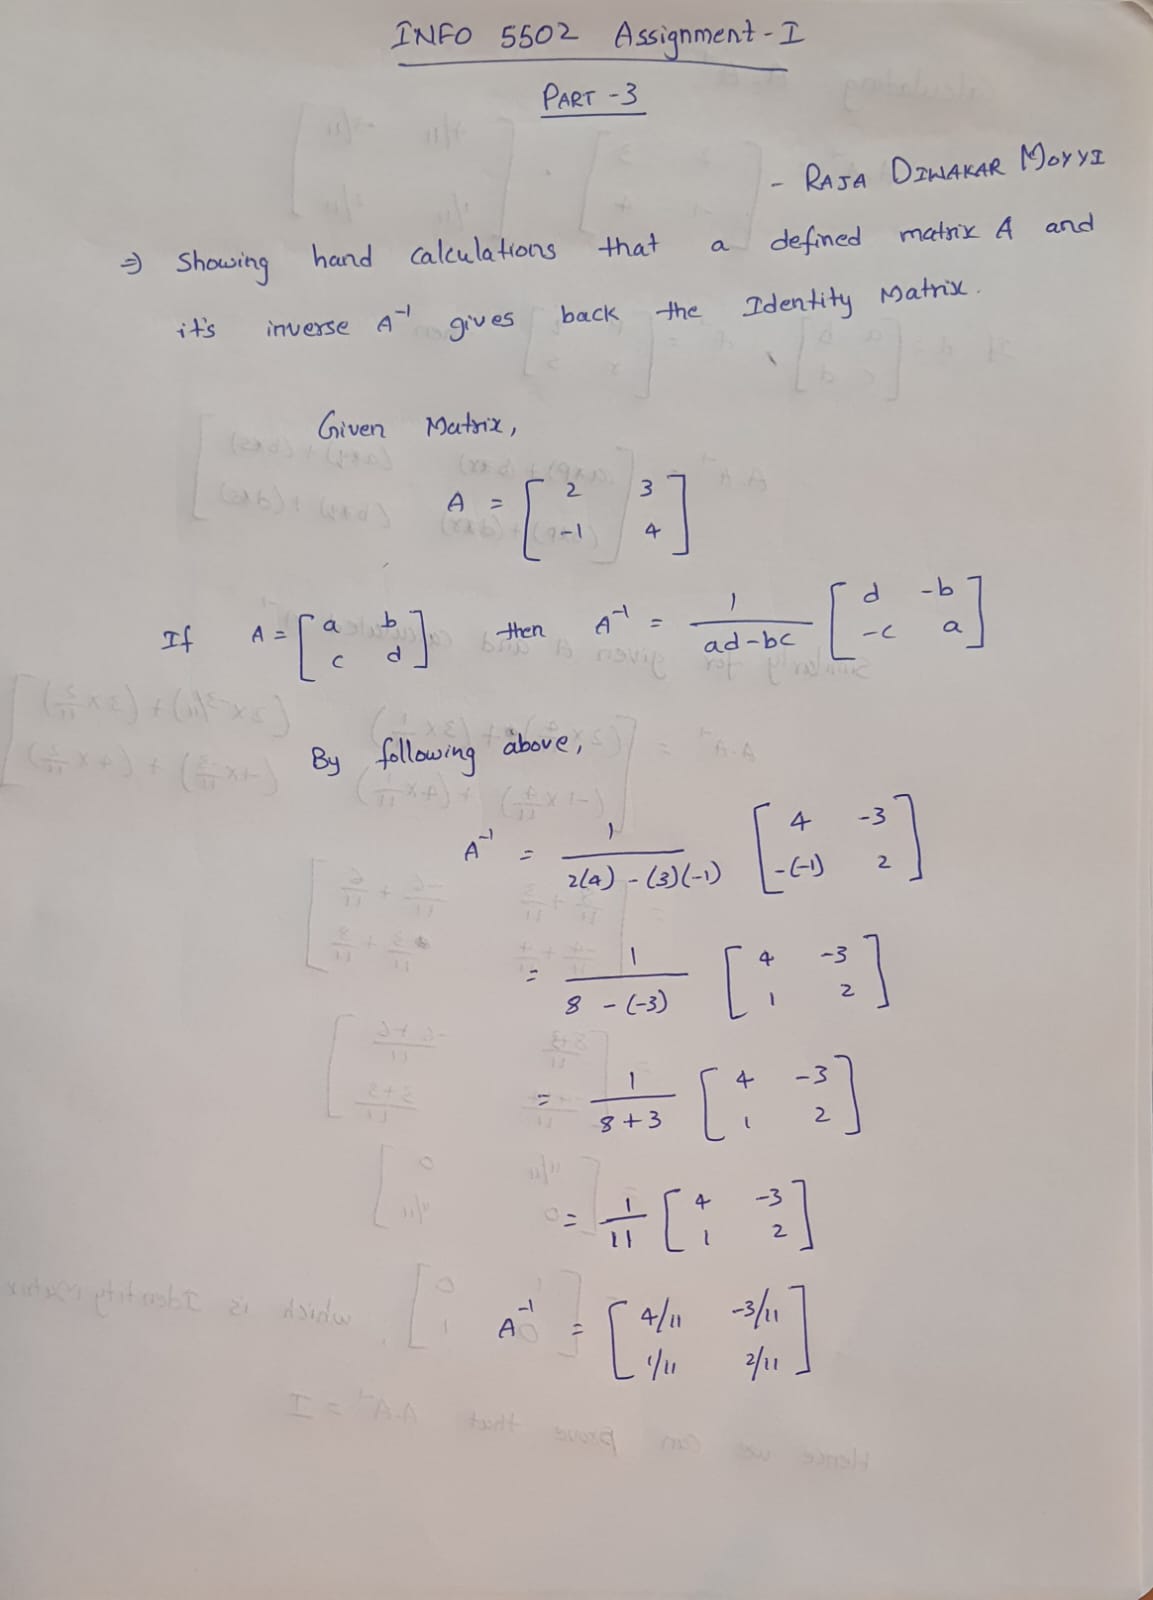 INFO 5502 Assignment-I
PART-3
- RAJA DIWAKAR MOYYI
⇒ Showing hand calculations that a defined matrix A and
it's inverse A⁻¹ gives back the Identity Matrix.
Given Matrix,
A = [ 2 3 ; -1 4 ]
If A = [ a b ; c d ] then A⁻¹ = 1/(ad-bc) [ d -b ; -c a ]
By following above,
A⁻¹ = 1/(2(4) - (3)(-1)) [ 4 -3 ; -(-1) 2 ]
= 1/(8 - (-3)) [ 4 -3 ; 1 2 ]
= 1/(8+3) [ 4 -3 ; 1 2 ]
= 1/11 [ 4 -3 ; 1 2 ]
A⁻¹ = [ 4/11 -3/11 ; 1/11 2/11 ]